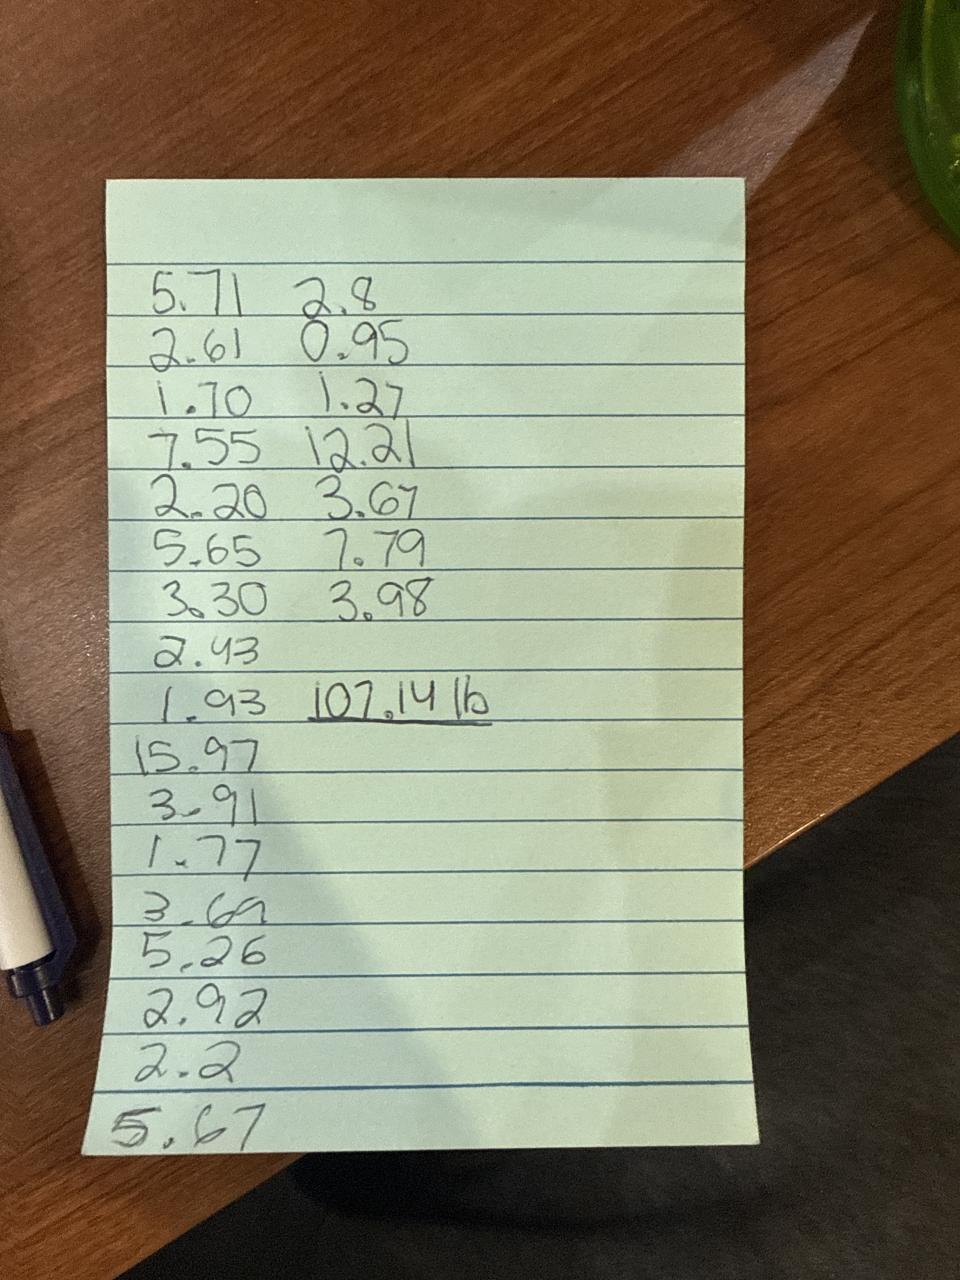 5.71
2.61
1.70
7.55
2.20
5.65
3.30
2.43
1.93
15.97
3.91
1.77
3.69
5.26
2.92
2.2
5.67
2.8
0.95
1.27
12.21
3.67
7.79
3.98
107.14 lb